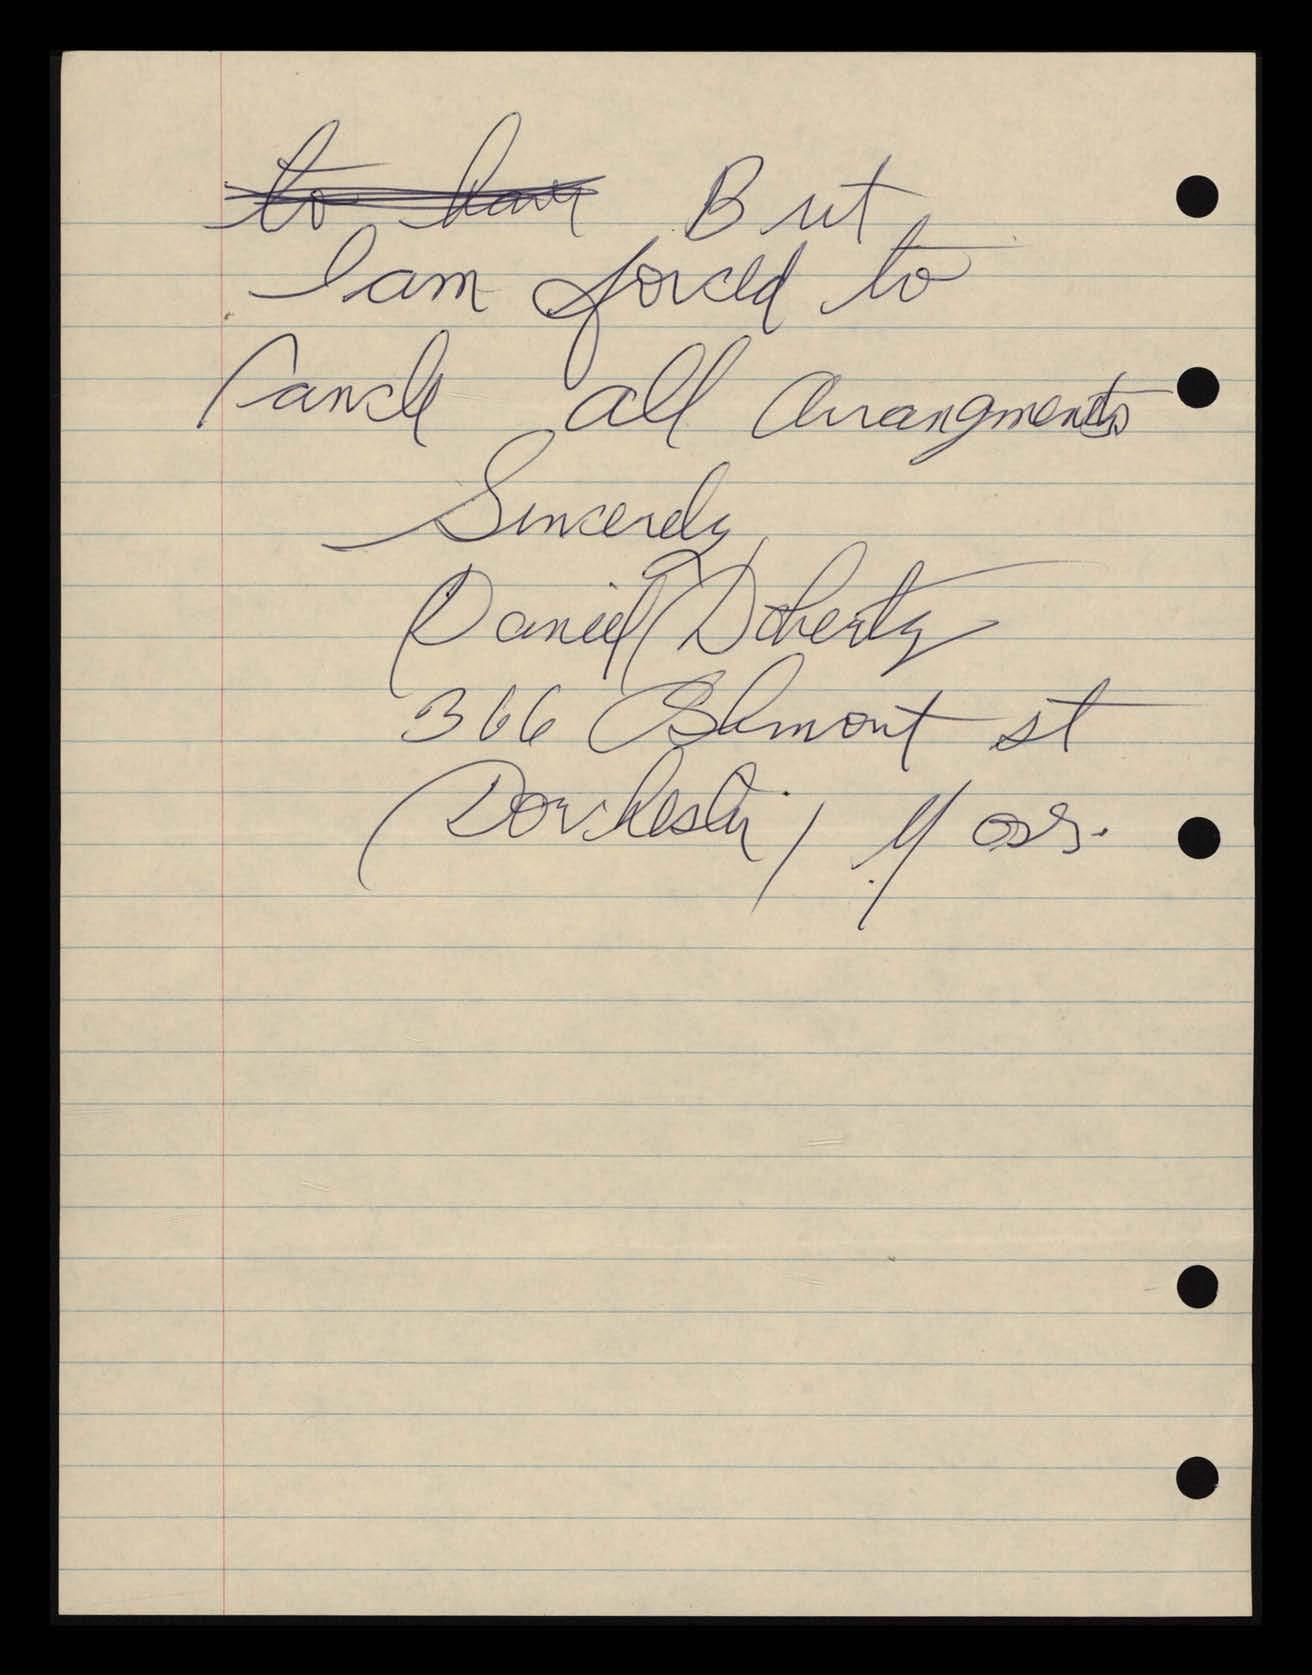 to have But
I am forced to
Cancle all Arrangments
Sincerely
Daniel Doherty
366 Ashmont st
Dorchester, Mass.